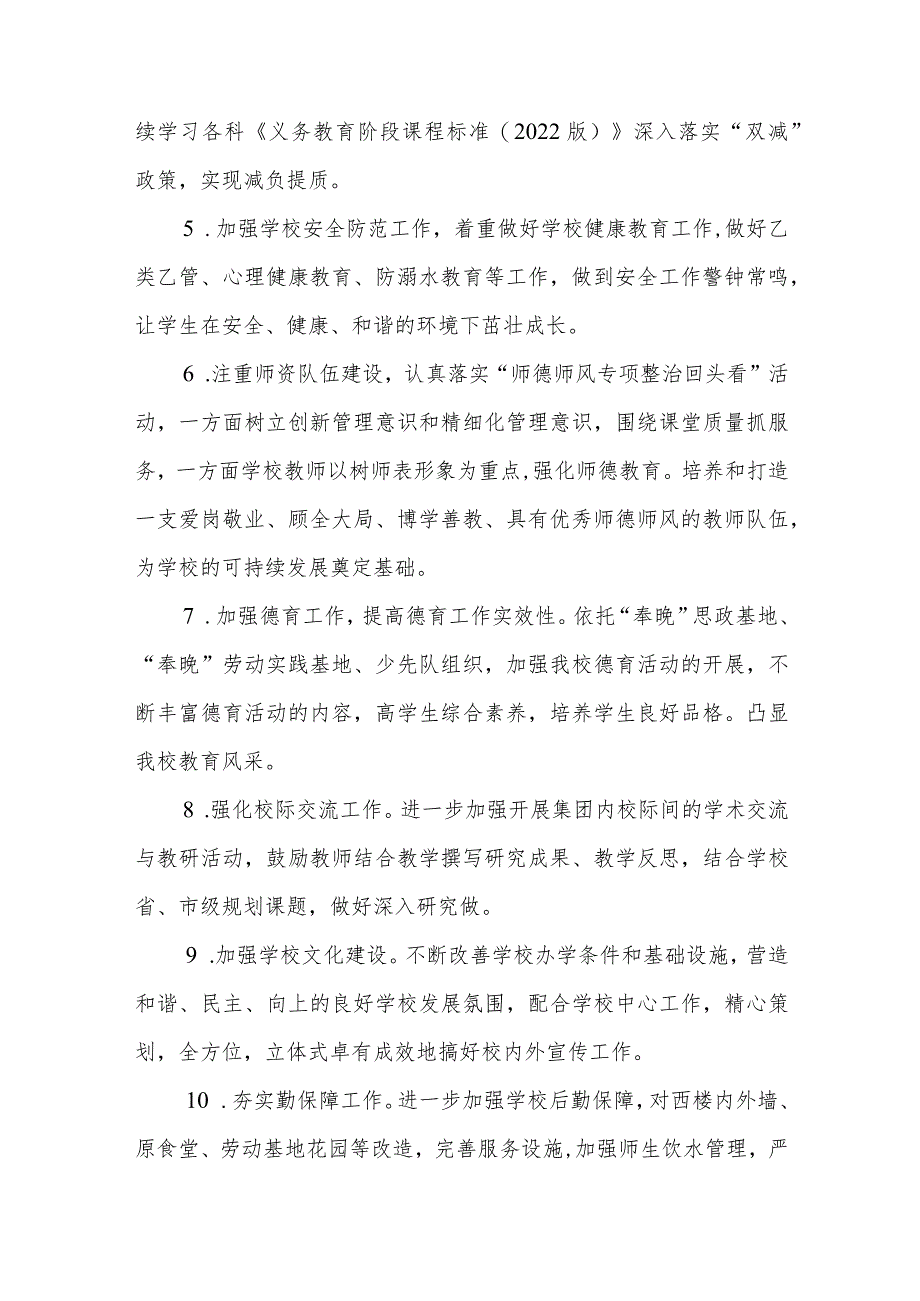 续学习各科《义务教育阶段课程标准（2022版）》深入落实“双减”
政策，实现减负提质。
5 .加强学校安全防范工作，着重做好学校健康教育工作,做好乙
类乙管、心理健康教育、防溺水教育等工作，做到安全工作警钟常鸣，
让学生在安全、健康、和谐的环境下茁壮成长。
6 .注重师资队伍建设，认真落实“师德师风专项整治回头看”活
动，一方面树立创新管理意识和精细化管理意识，围绕课堂质量抓服
务，一方面学校教师以树师表形象为重点,强化师德教育。培养和打造
一支爱岗敬业、顾全大局、博学善教、具有优秀师德师风的教师队伍，
为学校的可持续发展奠定基础。
7 .加强德育工作，提高德育工作实效性。依托“奉晚”思政基地、
“奉晚”劳动实践基地、少先队组织，加强我校德育活动的开展，不
断丰富德育活动的内容，高学生综合素养，培养学生良好品格。凸显
我校教育风采。
8 .强化校际交流工作。进一步加强开展集团内校际间的学术交流
与教研活动，鼓励教师结合教学撰写研究成果、教学反思，结合学校
省、市级规划课题，做好深入研究做。
9 .加强学校文化建设。不断改善学校办学条件和基础设施，营造
和谐、民主、向上的良好学校发展氛围，配合学校中心工作，精心策
划，全方位，立体式卓有成效地搞好校内外宣传工作。
10 .夯实勤保障工作。进一步加强学校后勤保障，对西楼内外墙、
原食堂、劳动基地花园等改造，完善服务设施,加强师生饮水管理，严